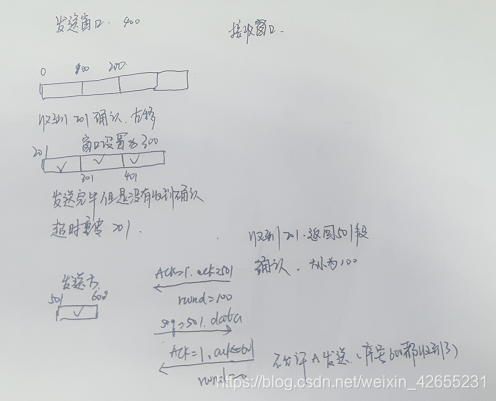 发送窗口. 400
接收窗口.
0 100 200
收到201确认, 右移
窗口设置为300
201
301 401
发送完毕但是没有收到确认
超时重传201.
收到201.返回501段
确认. 大小为100
发送方.
501 600
ACK=1.ack=501
rwnd=100
seq=501.data
ACK=1.ack=601
rwnd=0
不允许A发送.(序号600都收到了)
https://blog.csdn.net/weixin_42655231